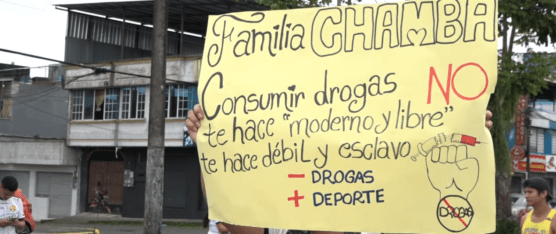 Familia CHAMBA
Consumir drogas NO
te hace "moderno y libre"
te hace débil y esclavo
- DROGAS
+ DEPORTE
DROGAS